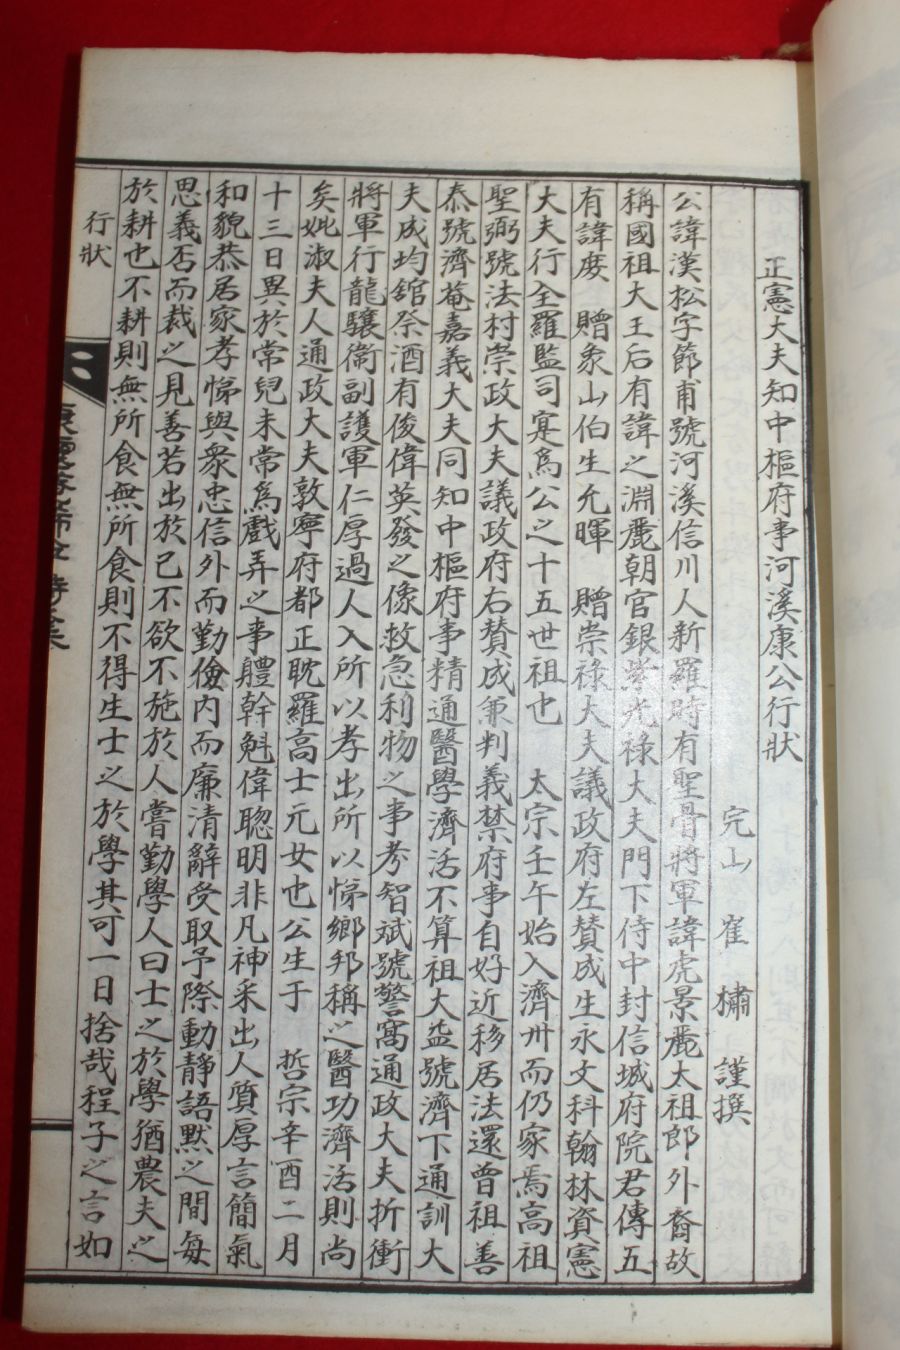 正憲大夫知中樞府事河溪康公行狀
完山 崔 橚 謹撰
公諱漢松字節甫號河溪信川人新羅時有聖骨將軍諱虎景麗太祖郎外裔故
稱國祖大王后有諱之淵麗朝官銀紫光祿大夫門下侍中封信城府院君傳五
有諱庋 贈象山伯生允暉 贈崇祿大夫議政府左賛成生永文科翰林資憲
大夫行全羅監司寔爲公之十五世祖也 太宗壬午始入濟州而仍家焉高祖
聖弼號法村崇政大夫議政府右賛成兼判義禁府事自好近移居法還曾祖善
泰號濟菴嘉義大夫同知中樞府事精通醫學濟活不算祖大益號濟下通訓大
夫成均舘祭酒有俊偉英發之像救急利物之事考智斌號警窩通政大夫折衝
將軍行龍驤衛副護軍仁厚過人入所以孝出所以悌鄉邦稱之醫功濟活則尚
矣妣淑夫人通政大夫敦寧府都正耽羅高士元女也公生于 哲宗辛酉二月
十三日異於常兒未常爲戲弄之事軆幹魁偉聰明非凡神采出人質厚言簡氣
和貌恭居家孝悌與衆忠信外而勤儉內而廉清辭受取予際動靜語默之間每
思義否而裁之見善若出於已不欲不施於人嘗勤學人曰士之於學猶農夫之
於耕也不耕則無所食無所食則不得生士之於學其可一日捨哉程子之言如
行狀